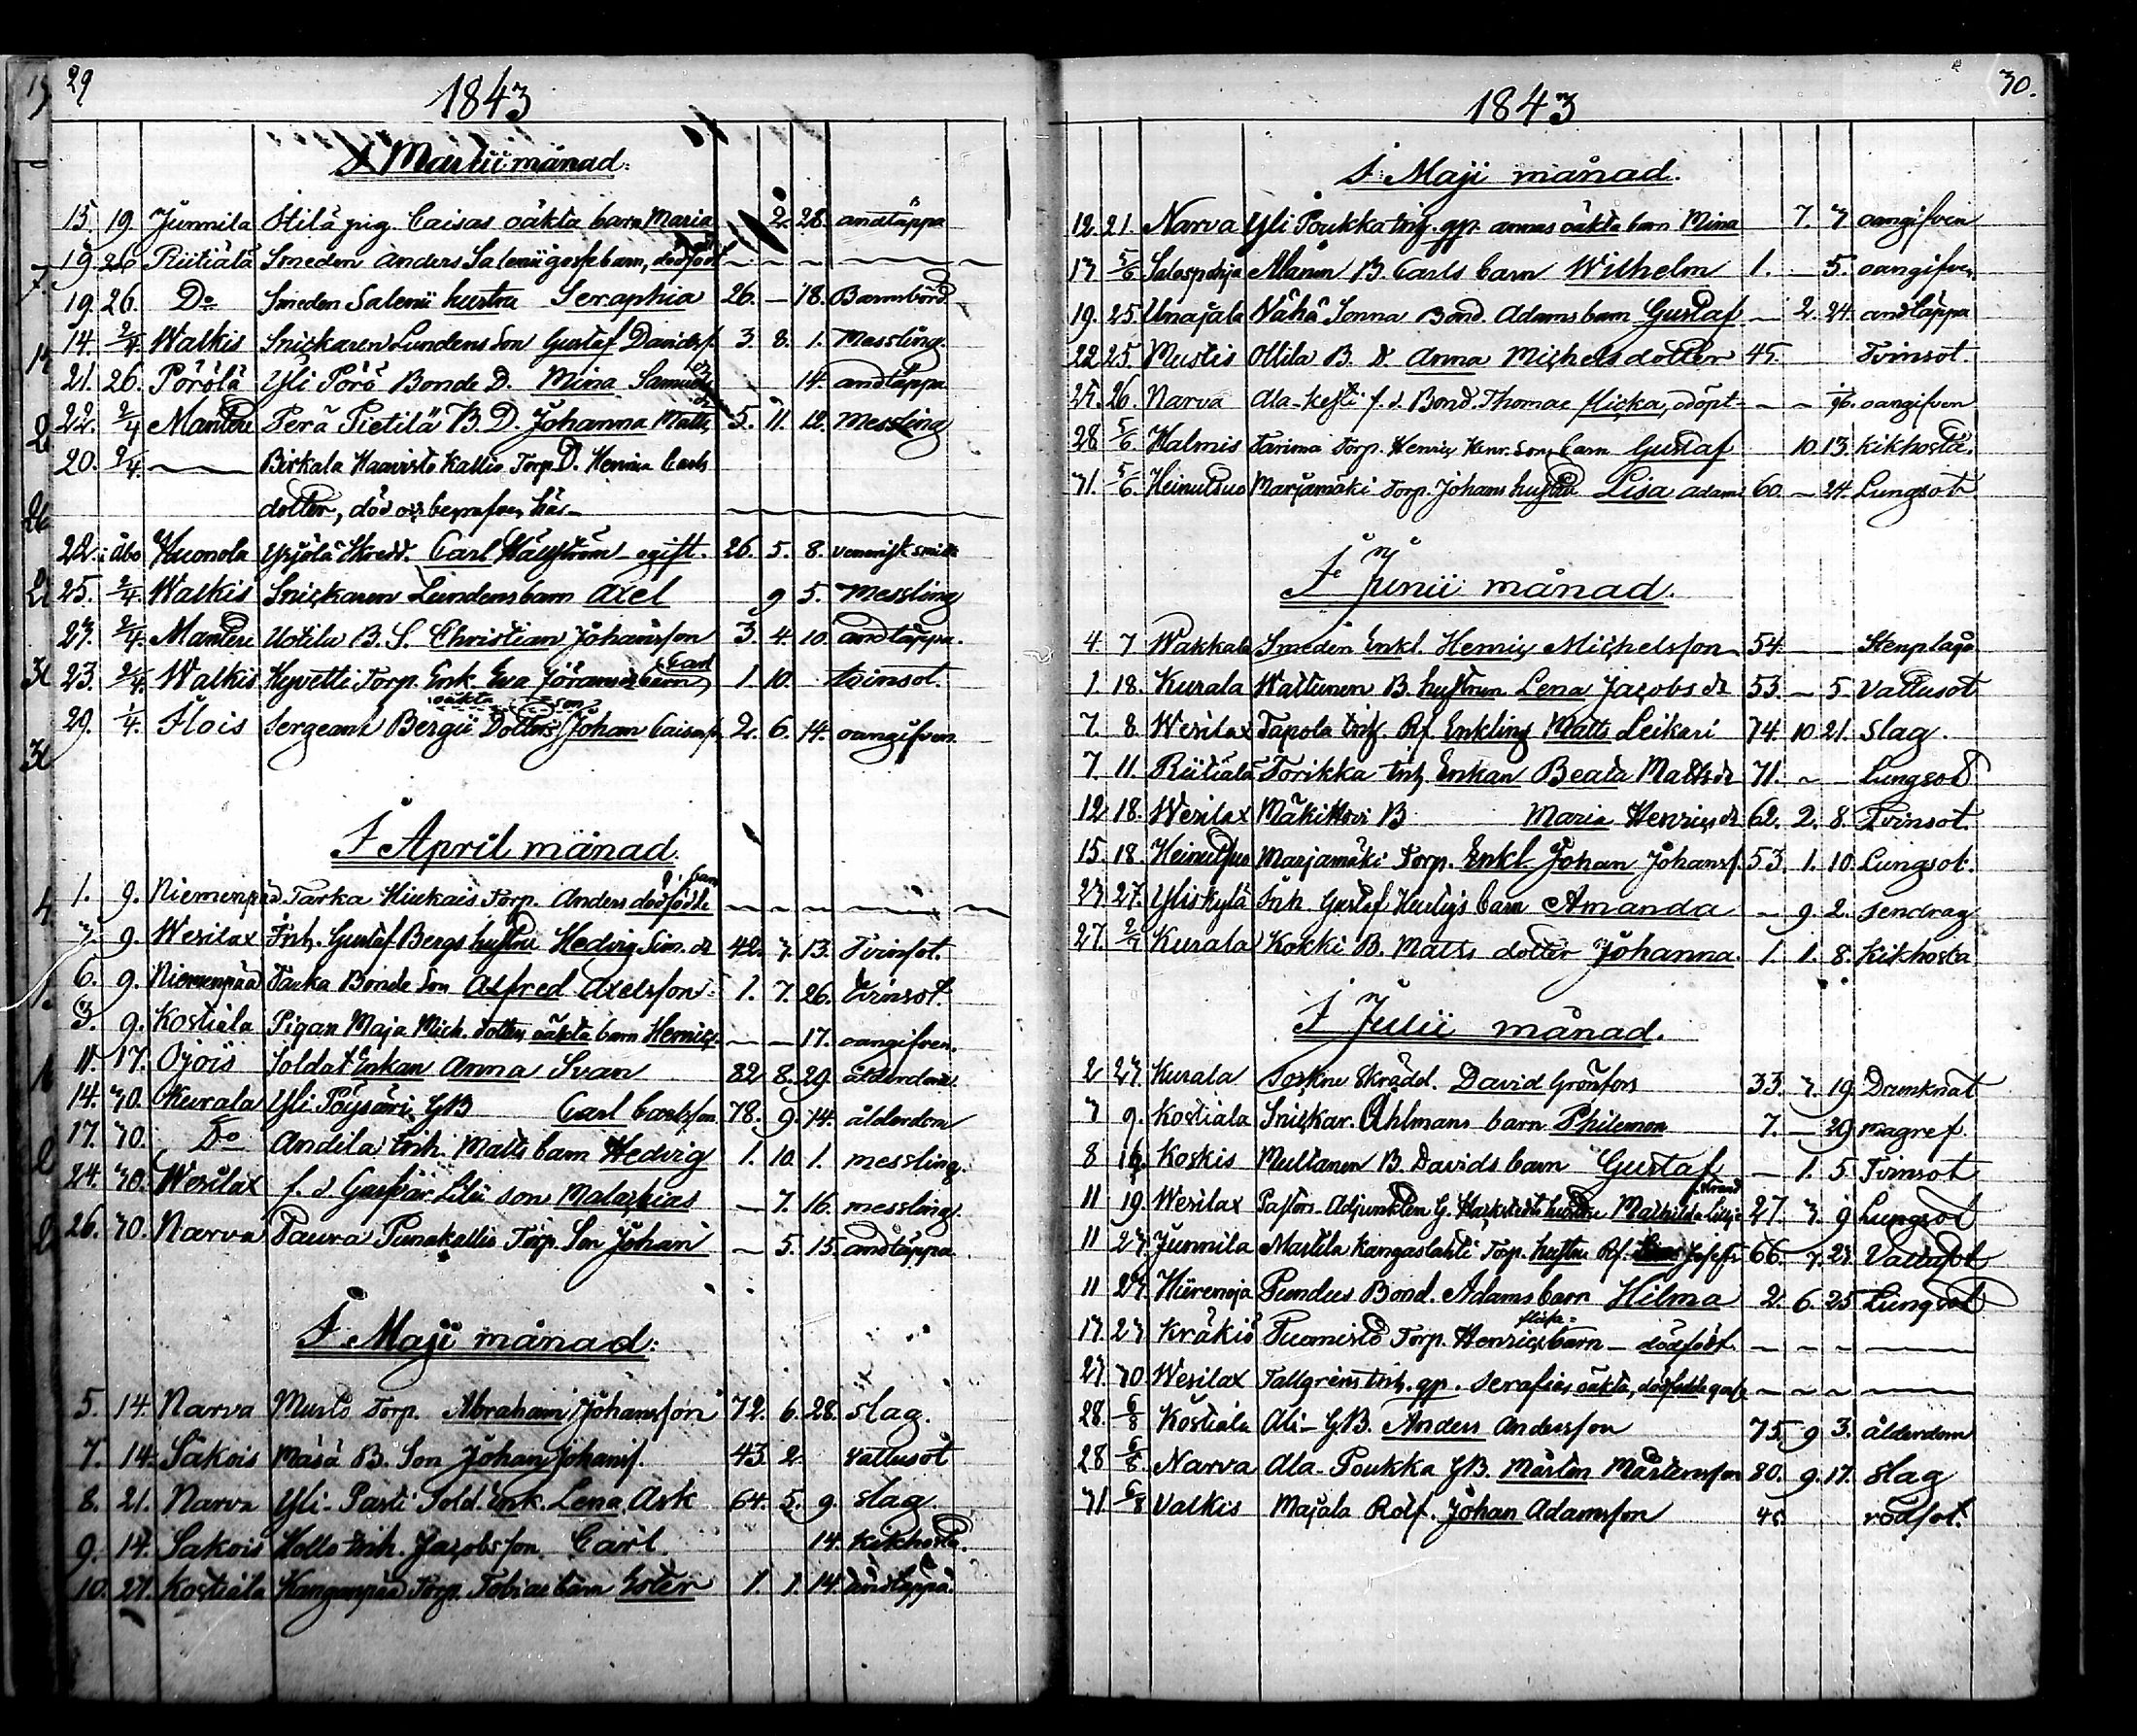 29
1843
I Martii månad.
15. 19. Junnila Stilä pig. Caisas oäkta barn Maria 2. 28. andtäppa
19. 26 Riitiälä Smeden Anders Salenii gossebarn, dödfödt
19. 26. Do Smeden Salenii hustru Seraphia 26. — 18. Barnsbörd
14. 2/4. Walkis Snickaren Lundens Son Gustaf Davidsf. 3. 8. 1. Messling.
21. 26. Pörölä Yli Pörö Bonde D. Mina Samuels dr 14. andtäppa
22. 2/4 Mantere Perä Pietilä B. D. Johanna Matts dr 5. 11. 12. Messling
20. 2/4. — Birkala Haavisto Kallio Torp. D. Henrica Carls
dotter, död och begrafven här —
22. åbo Huonola Yrjölä Skredd. Carl Hällström ogift. 26. 5. 8. venerisk smitta
25. 2/4. Walkis Snickaren Lundens barn Axel 9 5. Messling
27. 2/4. Mantere Uotila B. S. Christian Johansson 3. 4. 10. andtäppa.
23. 2/4. Walkis Hyvetti Torp. Enk. Eva Göransdr barn Carl 1. 10. tvinsot.
29. 1/4. Flois Sergeant Bergii Dotters oäkta son Johan Caisasf. 2. 6. 14. oangifven.
I April månad.
1. 9. Niemenpää Tarka Hiukais Torp. Anders dödfödde 2 barn
7. 9. Wesilax Inh. Gustaf Bergs hustru Hedvig Sim. dr 42. 7. 13. Tvinsot.
6. 9. Niemenpää Tarka Bonde Son Alfred Axelsson 1. 7. 26. tvinsot.
3. 9. Kostiala Pigan Maja Mich. dotters oäkta barn Henric — — 17. oangifven.
11. 17. Ojois Soldat Enkan Anna Svan 82 8. 29. ålderdom
14. 30. Kurala Yli Pöysäri GB Carl Carlsson 78. 9. 14. ålderdom
17. 30. Do Andila Inh. Matts barn Hedvig 1. 10. 1. messling.
24. 30. Wesilax f. d. Gaspar. Lilii son Malachias — 7. 16. messling.
26. 30. Narva Paura Punakallio Torp. Son Johan — 5. 15. andtäppa
I Maji månad:
5. 14. Narva Musto Torp. Abraham Johansson 72. 6. 28. slag.
7. 14. Säkois Mäsä B. Son Johan Johansf. 43. 2. vattusot
8. 21. Narva Yli-Pasti Sold. Enk. Lena Ask 64. 5. 9. slag.
9. 14. Sakois Hollo Inh. Jacobsson Carl. 14. kikhosta.
10. 21. Kostiala Kanganpää Torp. Tobias barn Ester 1. 1. 14 andtäppa.
30.
1843
I Maji månad.
12. 21. Narva Yli Poukka Inh. gp. Annas oäkta barn Mina 7. 7 oangifven
13 5/6 Salospohja Alanen B. Carls barn Wilhelm 1. — 5. oangifven
19. 25. Unajala Vähä Sonna Bond. Adams barn Gustaf — 2. 24. andtäppa
22 25. Mustis Ollila B. D. Anna Michelsdotter 45. Tvinsot.
25. 26. Narva Ala-Kesti f. d. Bond. Thomae flicka, odöpt — — oangifven
28 5/6 Halmis Tarima Torp. Henric Henr. Sons barn Gustaf 10. 13. kikhosta.
31. 5/6. Heinutsuo Marjamäki Torp. Johans hustru Lisa Adams 60. — 24. Lungsot
I Junii månad.
4. 7 Wakkala Smeden Enkl. Henric Michelsson 54. — — Stenplåga
1. 18. Kurala Wattunen B. hustrun Lena Jacobs dr 53. — 5. Vattusot
7. 8. Wesilax Tapola Inh. Rf. Enkling Matts Leikari 74. 10. 21. Slag.
7 11 Riitiälä Torikka Inh. Enkan Beata Matts dr 71. — — Lungsot
12 18. Wesilax Mäkikkori B Maria Henrics dr 62. 2. 8. Tvinsot.
15. 18. Heinutsuo Marjamäki Torp. Enkl. Johan Johansf. 53. 1. 10. Lungsot.
23 27. Yliskylä Inh. Gustaf Hurtigs barn Amanda — 9. 2. sendrag
27. 2/7 Kurala Kokki B. Matts dotter Johanna. 1. 1. 8. Kikhosta
I Julii månad.
2 23 Kurala Skrädd. David Grönfors 33. 7. 19. Drunknat
7 9. Kostiala Snickar. Åhlmans barn Philemon 7. — 29 magref.
8 16. Koskis Multanen B. Davids barn Gustaf — 1. 5. Tvinsot
11 19. Wesilax Pastors Adjunkten G. hustru Mathilda Liljestrand 27. 3. 9 Lungsot
11 23 Junnila Martila Kangaslahti Torp. hustru Rf. Josefs 66. 7. 23. Vattusot
11 23 Hiirenoja Pundus Bond. Adams barn Hilma 2. 6. 25 Lungsot
17 23 Kräkiö Tuomisto Torp. Henrics flicka barn — dödfödt.
23 30 Wesilax Tallgrens Inh. gp. Serafias oäkta, dödfödde gosse
28. 6/8 Kostiala Ali-GB. Anders Andersson 75. 9 3. ålderdom
28 6/8 Narva Ala-Poukka GB. Mårten Mårtensson 80. 9. 17. Slag
31 6/8 Valkis Majala Rotf. Johan Adamsson 45. rödsot.